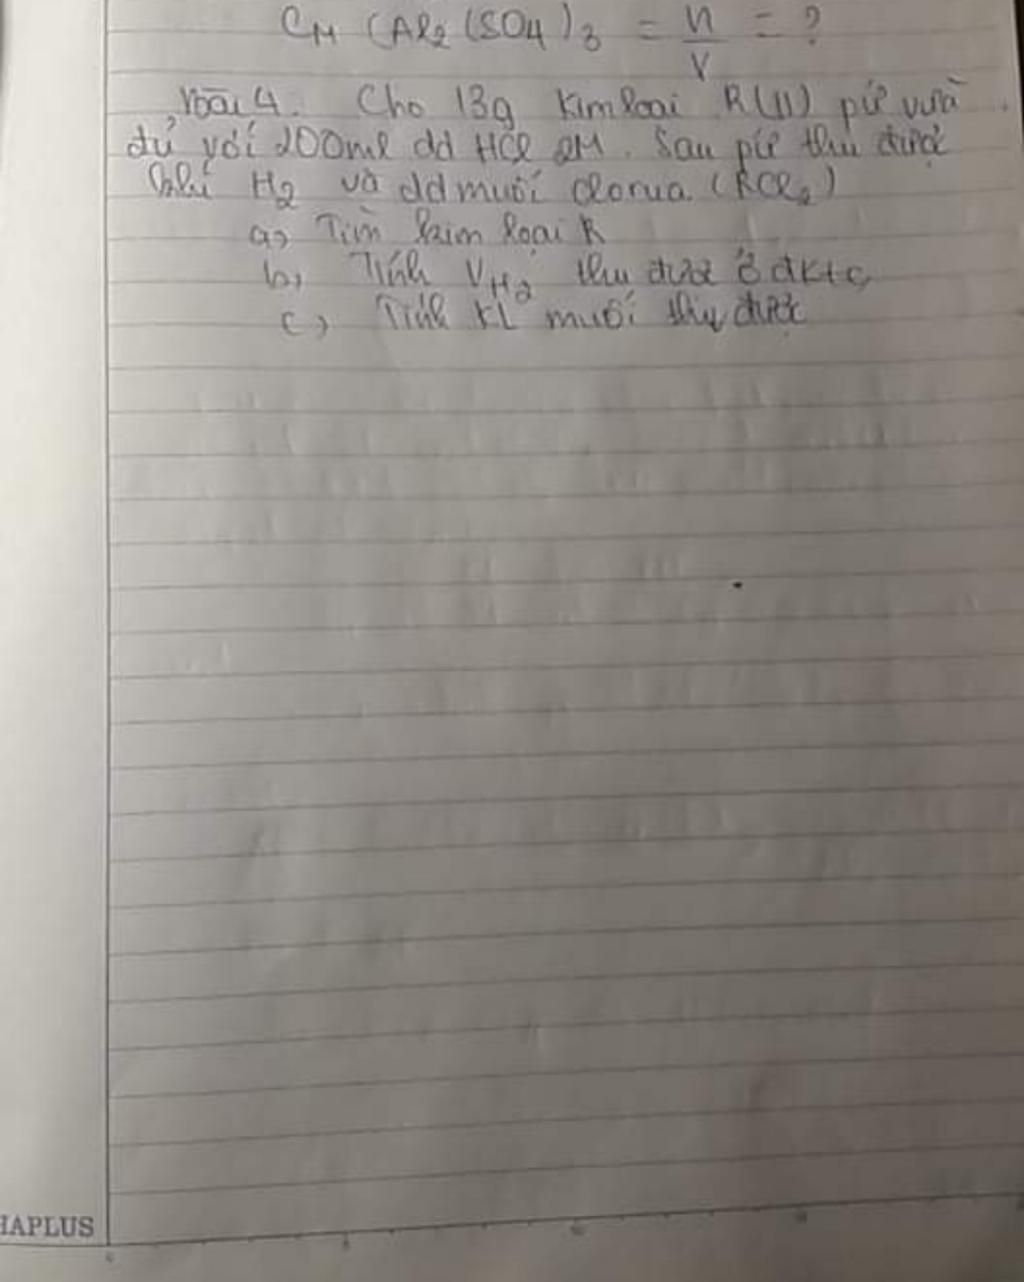 CM (Al2(SO4)3 = n/V = ?
Bài 4. Cho 13g kim loại R(II) pứ vừa
đủ với 200ml dd HCl 2M. Sau pứ thu được
khí H2 và dd muối clorua (RCl2)
a, Tìm kim loại R
b, Tính VH2 thu được ở đktc
c, Tính KL muối thu được
HAPLUS